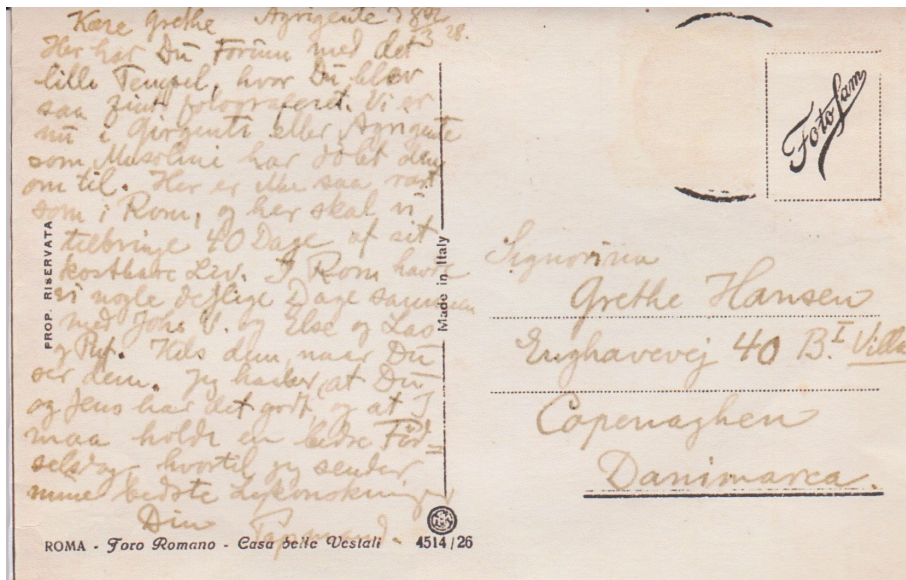 Kære Grethe Agrigente d 8/3 28.
Her har Du Forum med det
lille Tempel, hvor Du blev
saa fint fotograferet. Vi er
nu i Girgenti eller Agrigente
som Musolini har döbt den
om til. Her er ikke saa rart
som i Rom, og her skal vi
tilbringe 40 Dage af sit
kostbare Liv. I Rom havde
vi nogle dejlige Dage sammen
med Johs V. og Else og Lao
og Puf. Hils dem, naar Du
ser dem. Jeg haaber, at Du
og Jens har det godt, og at I
maa holde en bedre Föd-
selsdag hvortil jeg sender
mine bedste Lykönskninger
Din
PROP. RISERVATA
Made in Italy
ROMA - Foro Romano - Casa delle Vestali 4514/26
Foto Sam
Signorina
Grethe Hansen
Enghavevej 40 B. I Villa
Copenaghen
Danimarca.